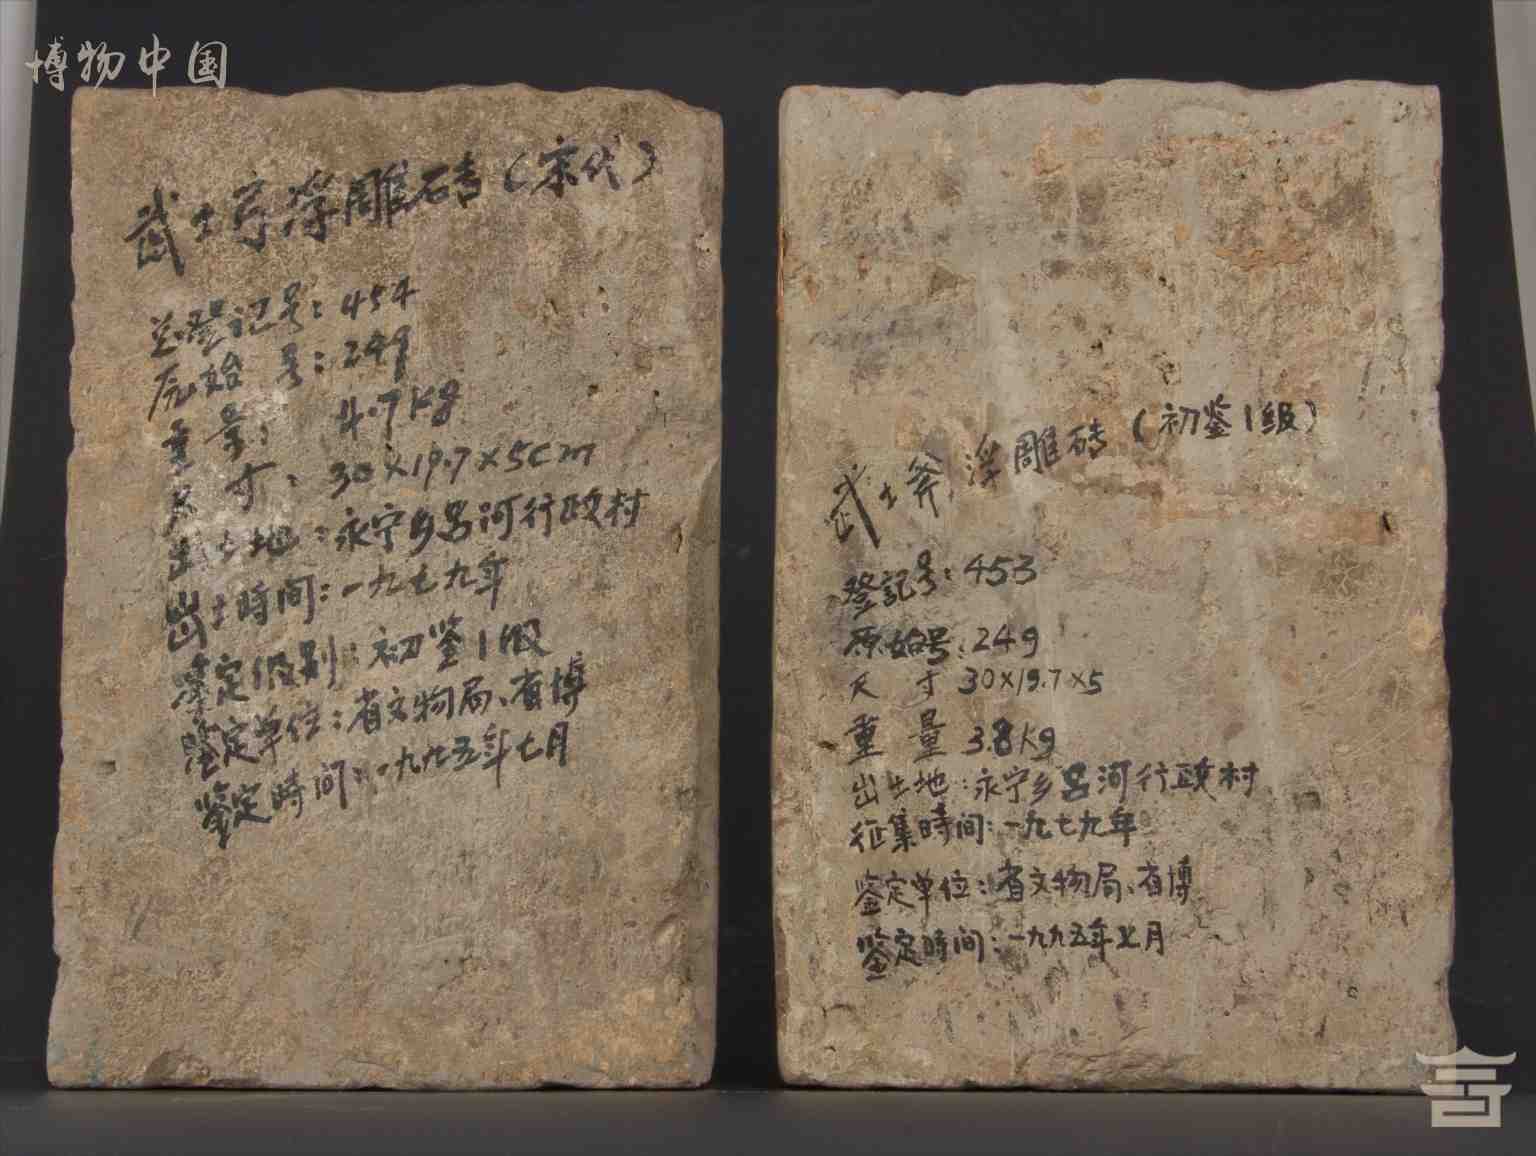 博物中国
武士弓浮雕砖(宋代)
总登记号:454
原始号:249
重量: 4.7kg
尺寸:30×19.7×5cm
出土地:永宁乡吕河行政村
出土時间:一九七九年
鉴定级别:初鉴1级
鉴定单位:省文物局、省博
鉴定時间:一九九五年七月
武士斧浮雕砖(初鉴1级)
登記号:453
原始号:249
尺寸 30×19.7×5
重量 3.8kg
出土地:永宁乡吕河行政村
征集時间:一九七九年
鉴定单位:省文物局、省博
鉴定時间:一九九五年七月